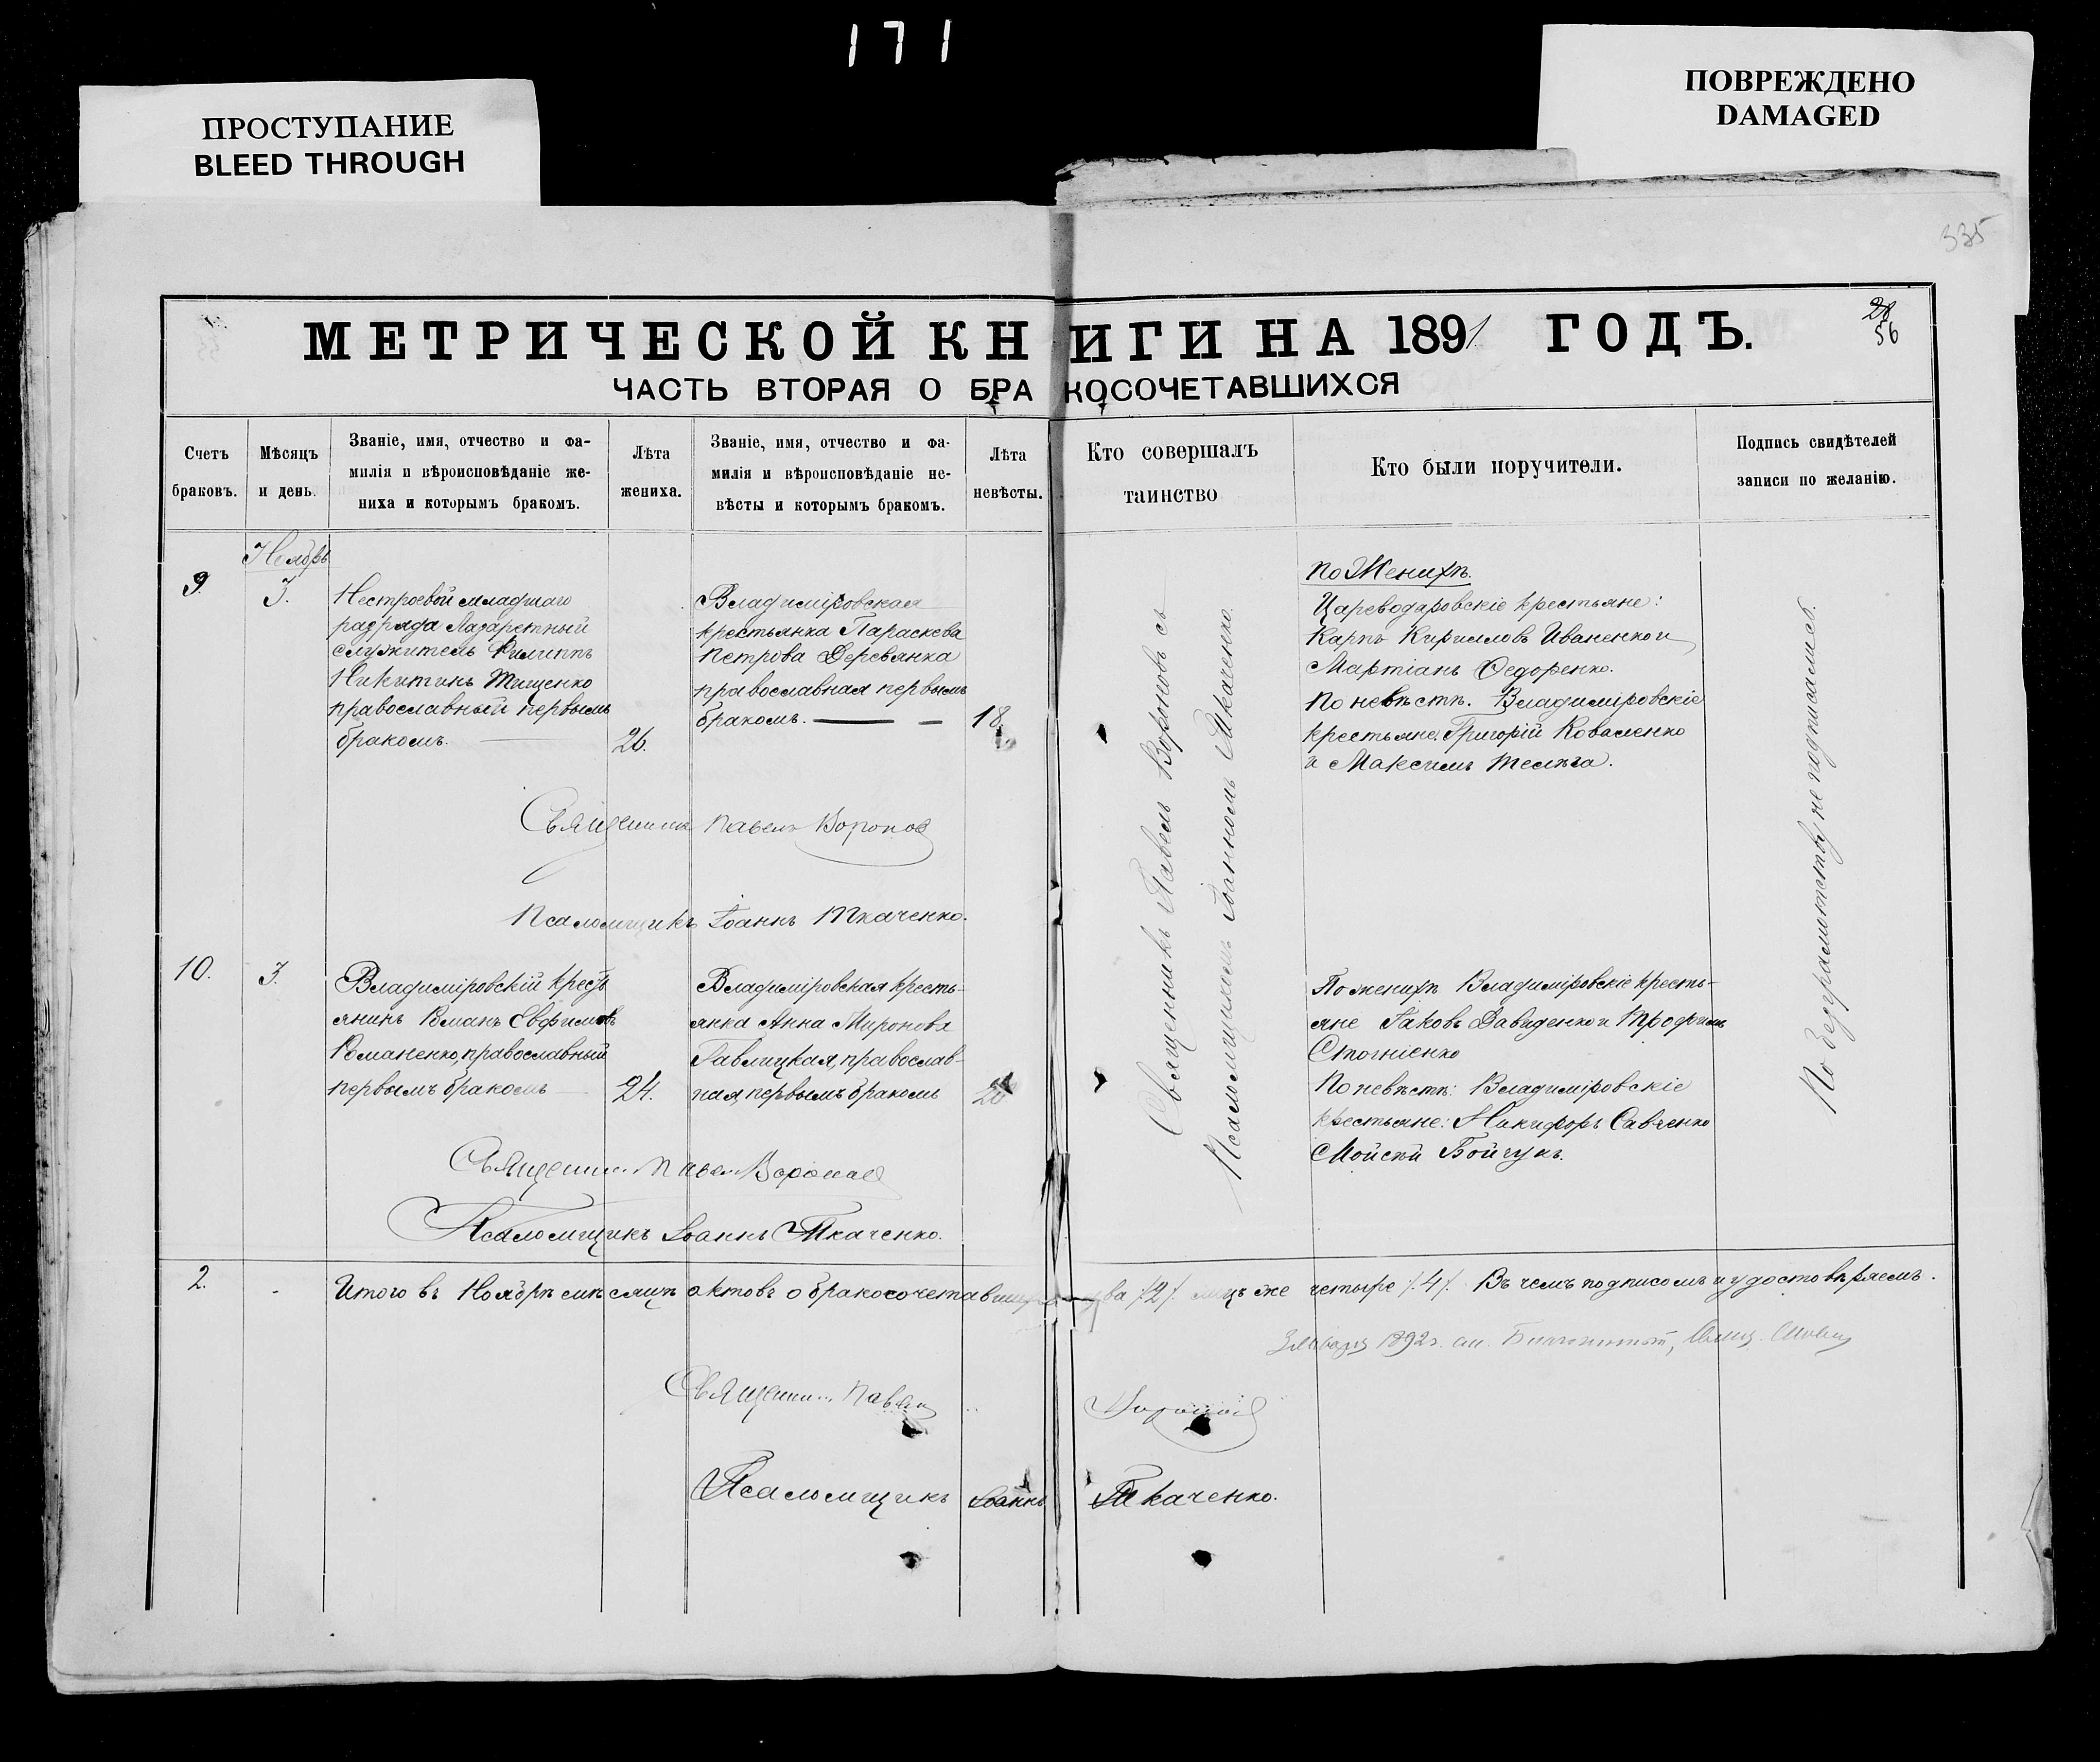 171
ПРОСТУПАНИЕ
BLEED THROUGH
ПОВРЕЖДЕНО
DAMAGED
335
28
56
МЕТРИЧЕСКОЙ КНИГИ НА 1891 ГОДЪ.
ЧАСТЬ ВТОРАЯ О БРАКОСОЧЕТАВШИХСЯ
Счетъ браковъ.
Мѣсяцъ и день.
Званіе, имя, отчество и фа-
милія и вѣроисповѣданіе же-
ниха и которымъ бракомъ.
Лѣта жениха.
Званіе, имя, отчество и фа-
милія и вѣроисповѣданіе не-
вѣсты и которымъ бракомъ.
Лѣта невѣсты.
Кто совершалъ таинство
Кто были поручители.
Подпись свидѣтелей записи по желанію.
9.
Ноябрь
3.
Нестроевой младшаго
разряда Лазаретный
служитель Филиппъ
Никитинъ Тищенко
православный первымъ
бракомъ.
26.
Владиміровская
крестьянка Параскева
Петрова Деревянка
православная первымъ
бракомъ.
18
По Женихѣ.
Цареводаровскіе крестьяне:
Карпъ Кирилловъ Иваненко и
Мартіанъ Федоренко.
По невѣстѣ. Владиміровскіе
крестьяне: Григорій Коваленко
и Максимъ Телѣга.
Священникъ Павелъ Вороновъ
Псаломщикъ Іоаннъ Ткаченко.
Священникъ Павелъ Вороновъ съ
Псаломщикомъ Іоанномъ Ткаченко.
По безграмотству не подписались.
10.
3.
Владиміровскій крест-
янинъ Романъ Евфимовъ
Романенко, православный
первымъ бракомъ
24.
Владиміровская кресть-
янка Анна Миронова
Гавлицкая, православ-
ная, первымъ бракомъ
20
По женихѣ Владиміровскіе кресть-
яне Іаковъ Давиденко и Трофимъ
Стогніенко
По невѣстѣ: Владиміровскіе
крестьяне: Никифоръ Савченко
Мойсей Бойчукъ.
Священникъ Павелъ Вороновъ
Псаломщикъ Іоаннъ Ткаченко.
2.
Итого въ Ноябрѣ мѣсяцѣ актовъ о бракосочетавшихся два /2/. лицъ же четыре /4/. Въ чемъ подписомъ и удостовѣряемъ.
Января 1892 г.
Священникъ Павелъ Вороновъ
Псаломщикъ Іоаннъ Ткаченко.